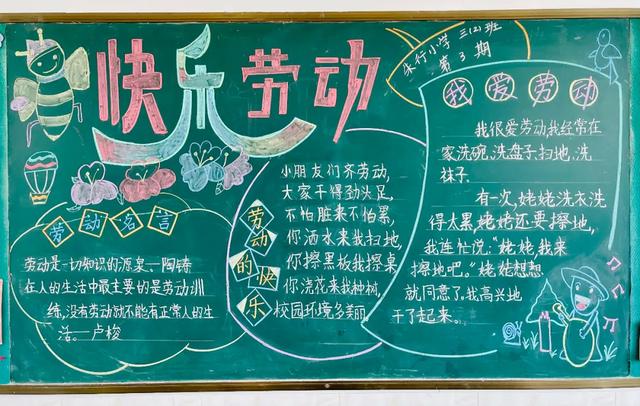 快乐劳动
朱行小学 三(2)班
第3期
劳动名言
劳动是一切知识的源泉、陶铸
在人的生活中最主要的是劳动训
练,没有劳动就不能有正常人的生
活。—卢梭
劳动的快乐
小朋友们齐劳动,
大家干得劲头足,
不怕脏来不怕累,
你洒水来我扫地,
你擦黑板我擦桌
你浇花来我种树,
校园环境多美丽
我爱劳动
我很爱劳动我经常在
家洗碗、洗盘子、扫地、洗
袜子.
有一次,姥姥洗衣洗
得太累,姥姥还要擦地,
我连忙说:“姥姥,我来
擦地吧。”姥姥想想
就同意了,我高兴地
干了起来。